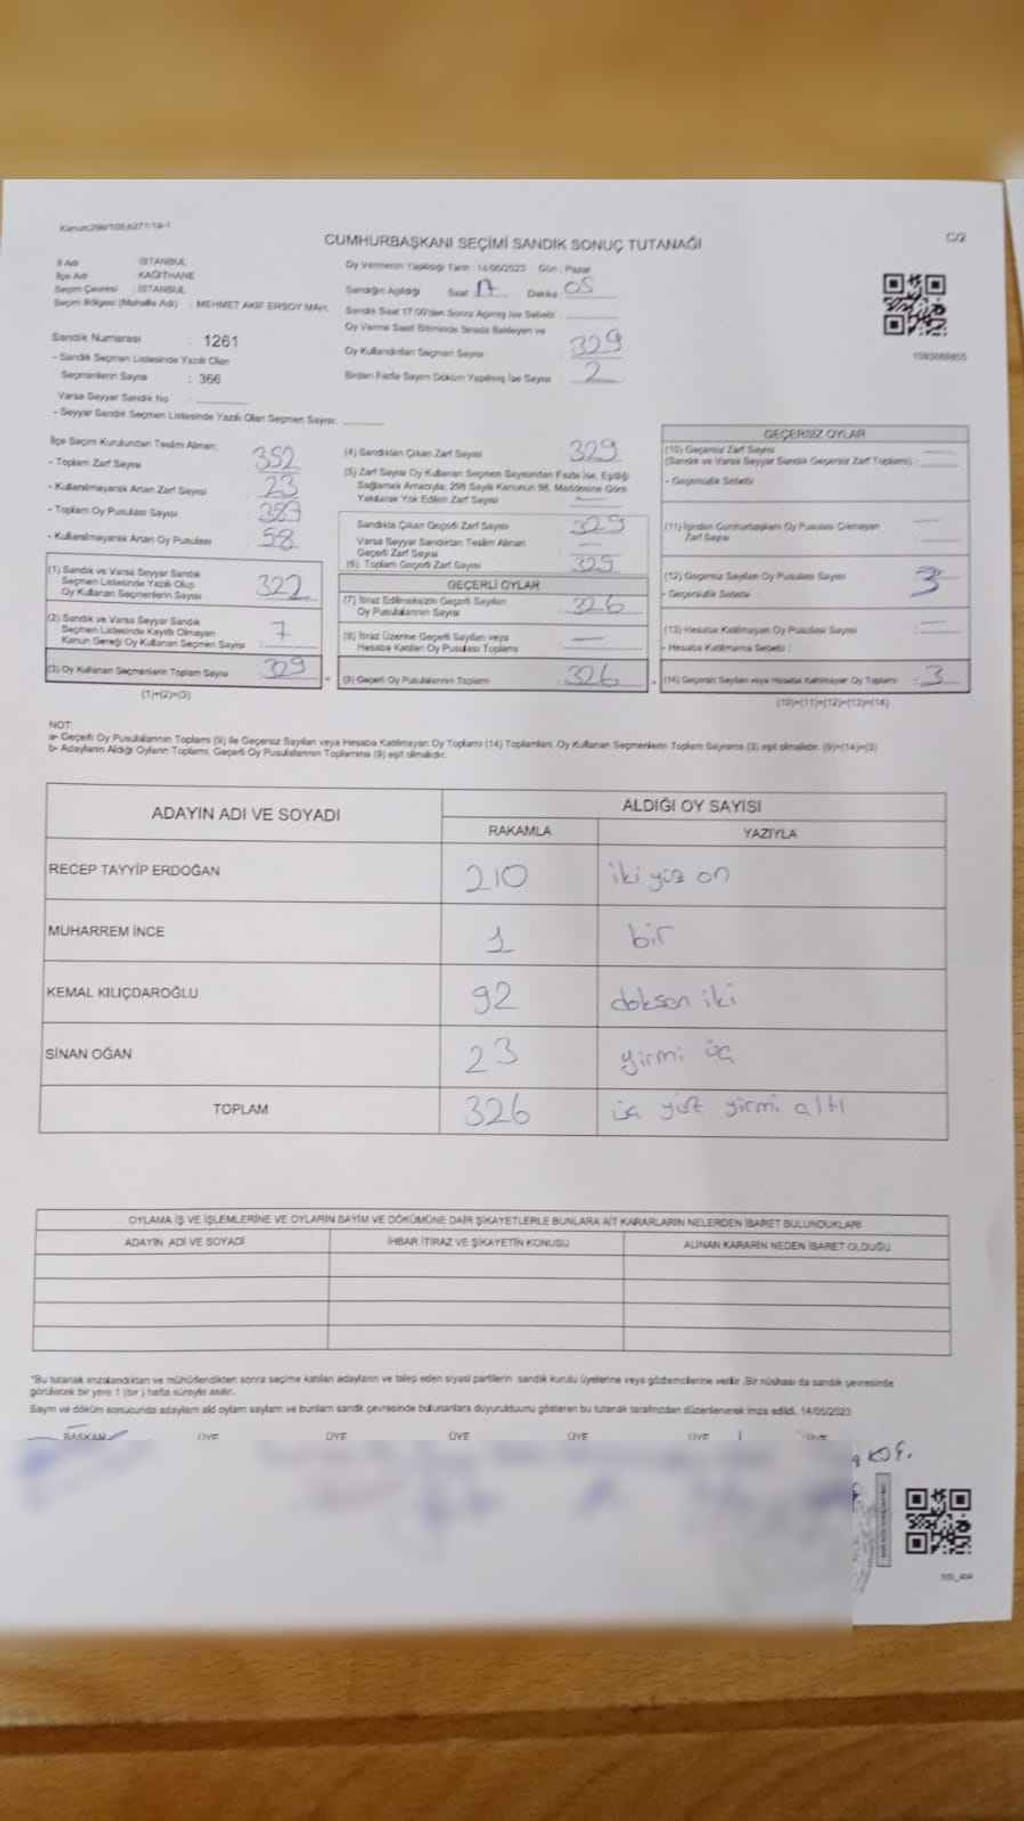 CUMHURBAŞKANI SEÇİMİ SANDIK SONUÇ TUTANAĞI
C/2
İl Adı İSTANBUL
İlçe Adı KAĞITHANE
Seçim Çevresi İSTANBUL
Seçim Bölgesi (Mahalle Adı) : MEHMET AKİF ERSOY MAH.
Oy Vermenin Yapıldığı Tarih : 14/05/2023 Gün : Pazar
Sandığın Açıldığı Saat 17 Dakika 05
Sandık Saat 17:00'den Sonra Açılmış İse Sebebi
Oy Verme Saati Bitiminde Sırada Bekleyen ve
Oy Kullandırılan Seçmen Sayısı 329
Birden Fazla Sayım Döküm Yapılmış İse Sayısı 2
Sandık Numarası : 1261
- Sandık Seçmen Listesinde Yazılı Olan
Seçmenlerin Sayısı : 366
Varsa Seyyar Sandık No
- Seyyar Sandık Seçmen Listesinde Yazılı Olan Seçmen Sayısı:
İlçe Seçim Kurulundan Teslim Alınan:
- Toplam Zarf Sayısı 352
- Kullanılmayarak Artan Zarf Sayısı 23
- Toplam Oy Pusulası Sayısı
- Kullanılmayarak Artan Oy Pusulası 58
(1) Sandık ve Varsa Seyyar Sandık
Seçmen Listesinde Yazılı Olup
Oy Kullanan Seçmenlerin Sayısı 322
(2) Sandık ve Varsa Seyyar Sandık
Seçmen Listesinde Kayıtlı Olmayan
Kanun Gereği Oy Kullanan Seçmen Sayısı 7
(3) Oy Kullanan Seçmenlerin Toplam Sayısı
(1)+(2)=(3)
(4) Sandıktan Çıkan Zarf Sayısı 329
(5) Zarf Sayısı Oy Kullanan Seçmen Sayısından Fazla İse, Eşitliği
Sağlamak Amacıyla, 298 Sayılı Kanunun 98. Maddesine Göre
Yakılarak Yok Edilen Zarf Sayısı
Sandıkta Çıkan Geçerli Zarf Sayısı 329
Varsa Seyyar Sandıktan Teslim Alınan
Geçerli Zarf Sayısı
(6) Toplam Geçerli Zarf Sayısı 329
GEÇERLİ OYLAR
(7) İtiraz Edilmeksizin Geçerli Sayılan
Oy Pusulalarının Sayısı 326
(8) İtiraz Üzerine Geçerli Sayılan veya
Hesaba Katılan Oy Pusulası Toplamı
(9) Geçerli Oy Pusulalarının Toplamı 326
GEÇERSİZ OYLAR
(10) Geçersiz Zarf Sayısı
(Sandık ve Varsa Seyyar Sandık Geçersiz Zarf Toplamı)
- Geçersizlik Sebebi
(11) İçinden Cumhurbaşkanı Oy Pusulası Çıkmayan
Zarf Sayısı
(12) Geçersiz Sayılan Oy Pusulası Sayısı 3
- Geçersizlik Sebebi :
(13) Hesaba Katılmayan Oy Pusulası Sayısı
- Hesaba Katılmama Sebebi :
(14) Geçersiz Sayılan veya Hesaba Katılmayan Oy Toplamı 3
(10)+(11)+(12)+(13)=(14)
NOT:
a- Geçerli Oy Pusulalarının Toplamı (9) ile Geçersiz Sayılan veya Hesaba Katılmayan Oy Toplamı (14) Toplamları, Oy Kullanan Seçmenlerin Toplam Sayısına (3) eşit olmalıdır. (9)+(14)=(3)
b- Adayların Aldığı Oyların Toplamı, Geçerli Oy Pusulalarının Toplamına (9) eşit olmalıdır.
ADAYIN ADI VE SOYADI
ALDIĞI OY SAYISI
RAKAMLA YAZIYLA
RECEP TAYYİP ERDOĞAN 210 iki yüz on
MUHARREM İNCE 1 bir
KEMAL KILIÇDAROĞLU 92 doksan iki
SİNAN OĞAN 23 yirmi üç
TOPLAM 326 üç yüz yirmi altı
OYLAMA İŞ VE İŞLEMLERİNE VE OYLARIN SAYIM VE DÖKÜMÜNE DAİR ŞİKAYETLERLE BUNLARA AİT KARARLARIN NELERDEN İBARET BULUNDUKLARI
ADAYIN ADI VE SOYADI İHBAR İTİRAZ VE ŞİKAYETİN KONUSU ALINAN KARARIN NEDEN İBARET OLDUĞU
*Bu tutanak imzalandıktan ve mühürlendikten sonra seçime katılan adayların ve talep eden siyasi partilerin sandık kurulu üyelerine veya gözlemcilerine verilir. Bir nüshası da sandık çevresinde
görülecek bir yere 1 (bir) hafta süreyle asılır.
Sayım ve döküm sonucunda adayların aldığı oyların sayılarını ve bunların sandık çevresinde bulunanlara duyurulduğunu gösteren bu tutanak tarafımızdan düzenlenerek imza edildi. 14/05/2023
BAŞKAN ÜYE ÜYE ÜYE ÜYE ÜYE ÜYE